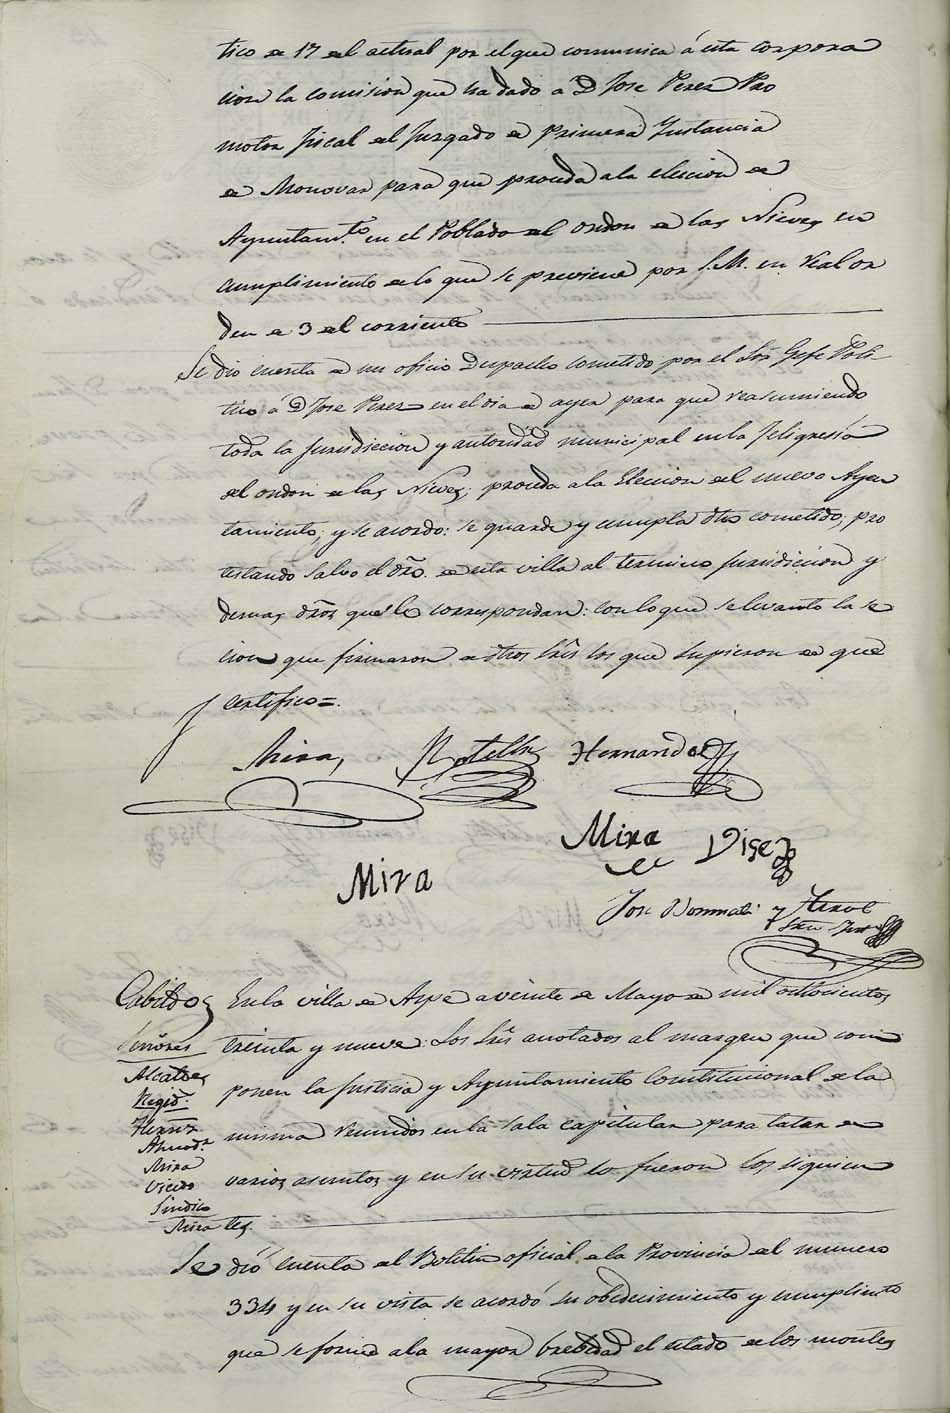 tico de 17 del actual por el que comunica á esta corpora
cion la comision que ha dado á D. Jose Perez Pro
motor fiscal del Juzgado de Primera Instancia
de Monovar para que proceda a la eleccion de
Ayuntam.to en el Poblado del ondon de las Nieves en
cumplimiento de lo que se previene por S.M. en Real or
den de 3 del corriente
Se dio cuenta de un oficio despacho cometido por el Sor. Gefe Poli
tico á D. Jose Perez en el dia de ayer para que reasumiendo
toda la Jurisdiccion y autoridad municipal en la feligresia
del ondon de las Nieves, proceda a la Eleccion del nuevo Ayun
tamiento; y se acordo: se guarde y cumpla dho cometido, pro
testando salvo el dro. de esta villa al termino jurisdiccion y
demas dros que le correspondan: con lo que se levanto la se
cion que firmaron de dhos Sres los que supieron de que
certifico=.
Mira, Hernandez
Mira Dise
Mira
Jose
Cabildo En la villa de Aspe a veinte de Mayo de mil ochocientos
Señores treinta y nueve: Los Sres anotados al margen que com
Alcalde ponen la Justicia y Ayuntamiento Constitucional de la
Regid.
misma reunidos en la Sala capitular para tatar de
Almod.r
Mira
Vicedo varios asuntos y en su virtud lo fueron los siguien
Sindico
Mira tes.
Se dió cuenta del Boletin oficial de la Provincia del numero
334 y en su vista se acordó su obedecimiento y cumplimiento
que se forme a la mayor brebedad el estado de los montes